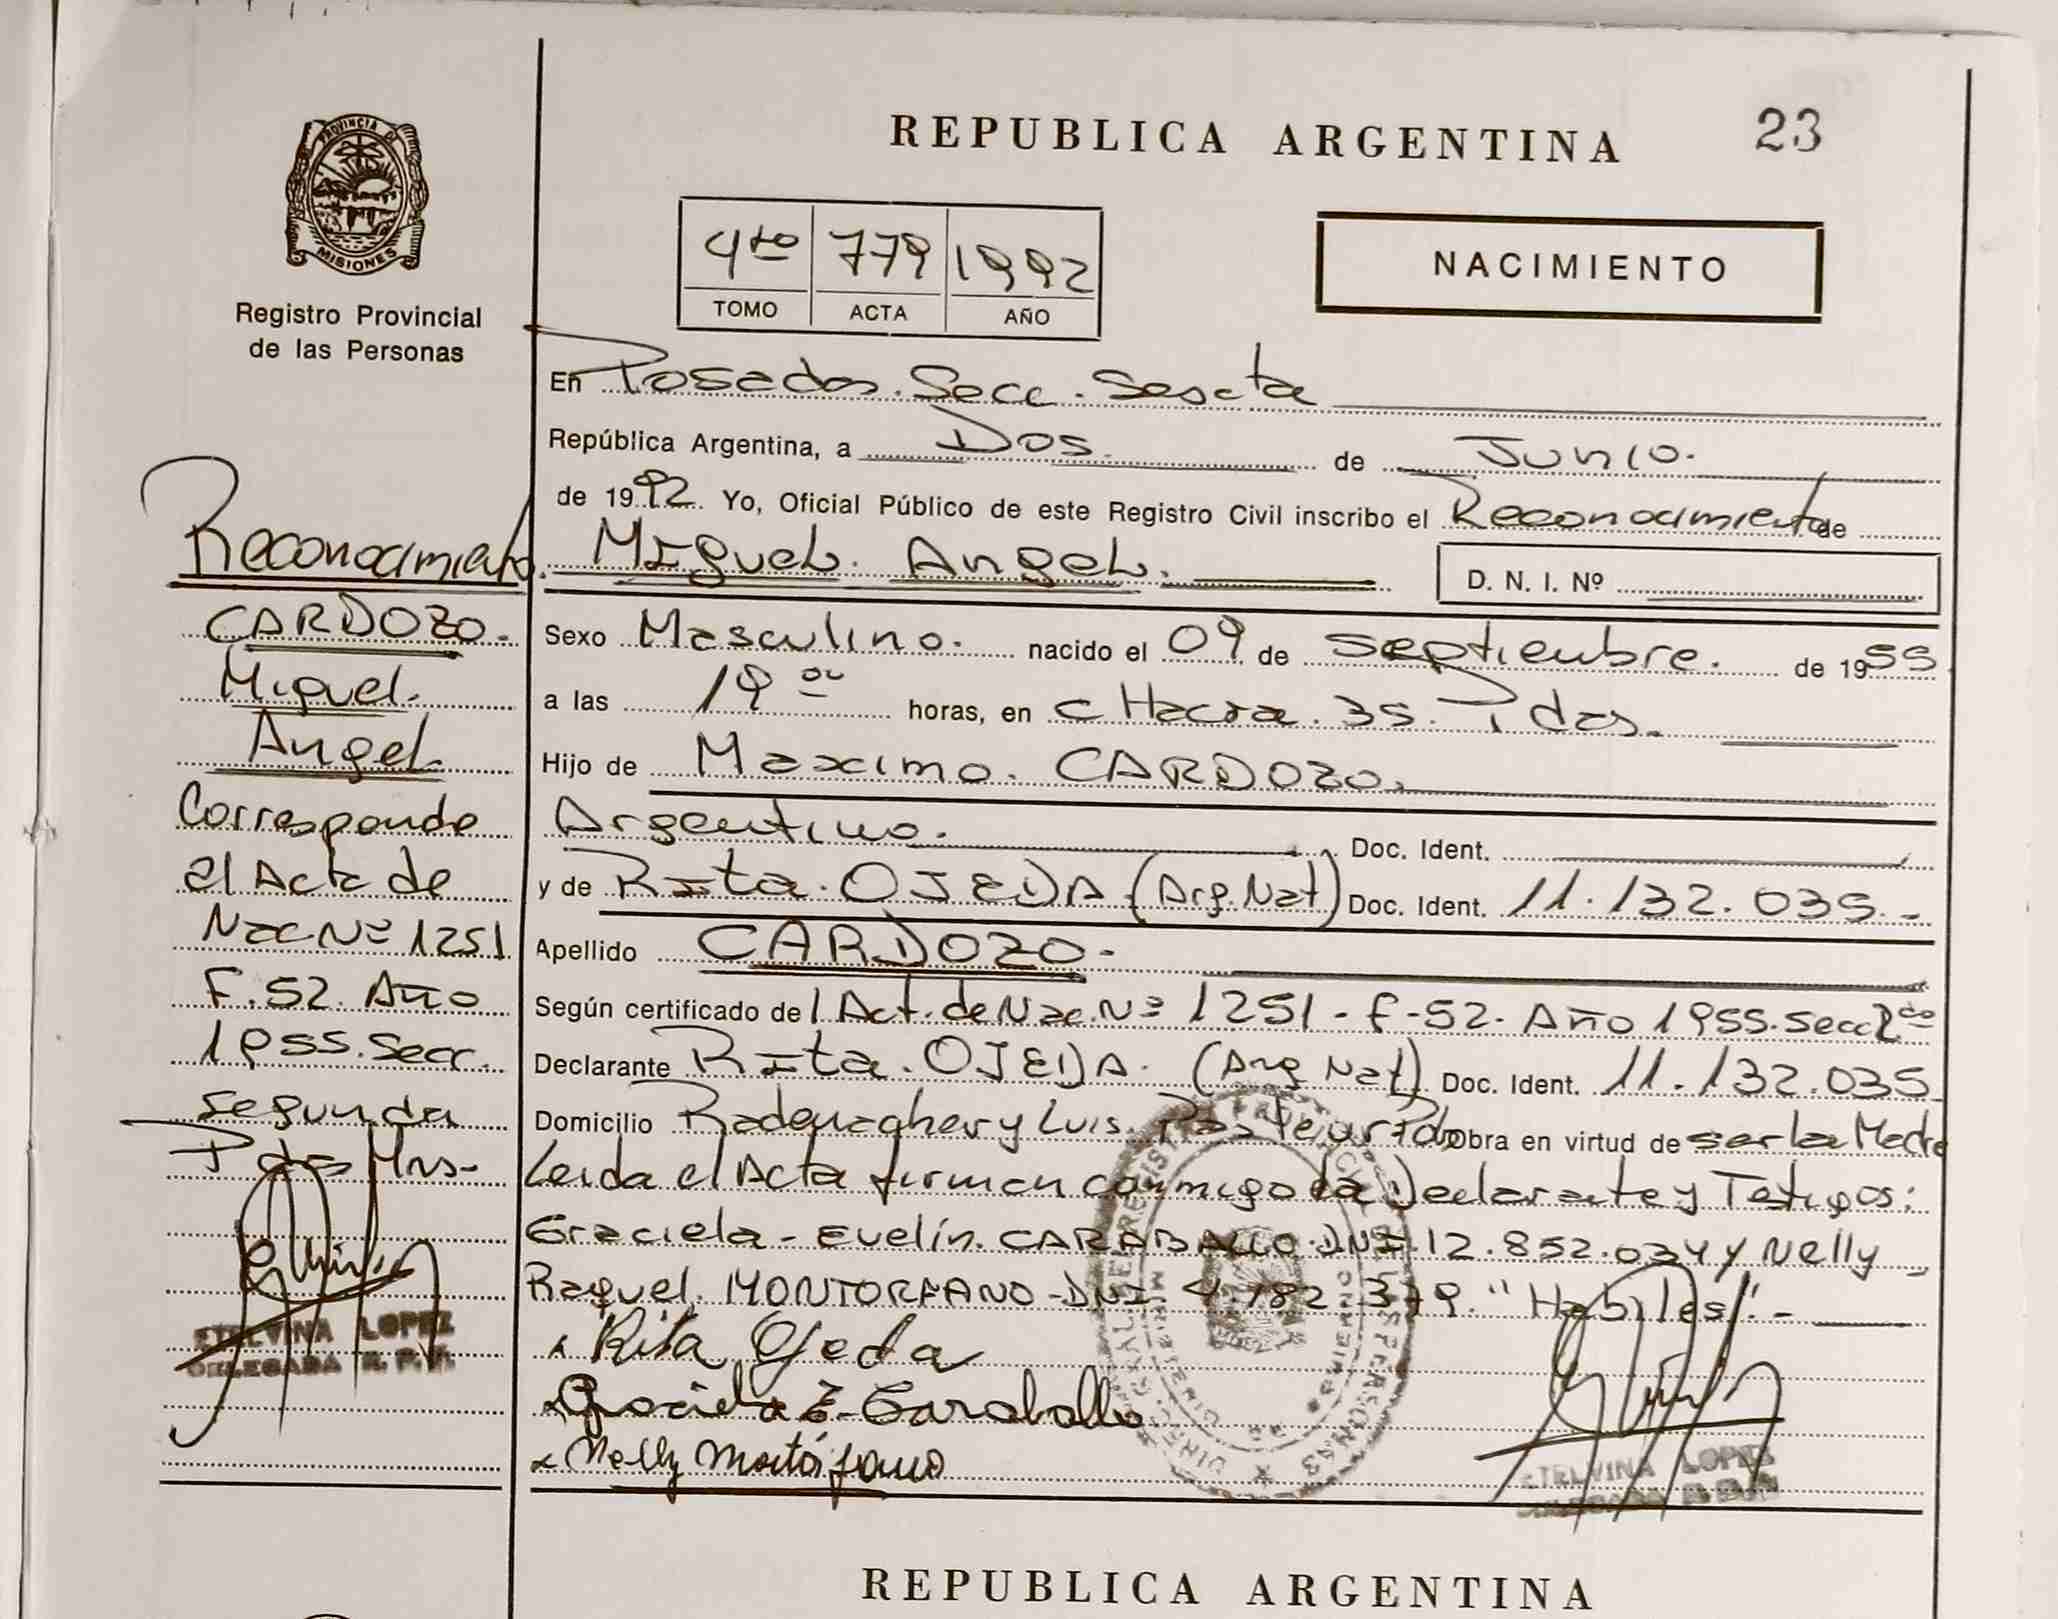 PROVINCIA DE
MISIONES
Registro Provincial
de las Personas
Reconocimiento.
CARDOZO.
Miguel.
Angel.
Corresponde
el Acta de
Nac Nº 1251
F. 52. Año
1955. Secc.
Segunda
Pdas Mns-
ETELVINA LOPEZ
DELEGADA R. P. P.
REPUBLICA ARGENTINA 23
4to 779 1992
TOMO ACTA AÑO
NACIMIENTO
En Posadas. Secc. Sexta
República Argentina, a Dos. de Junio.
de 1992. Yo, Oficial Público de este Registro Civil inscribo el Reconocimiento de
Miguel. Angel. D. N. I. Nº
Sexo Masculino. nacido el 09 de septiembre. de 1955.
a las 19 oo horas, en CHacra. 35. Pdas.
Hijo de Maximo. CARDOZO.
Argentino. Doc. Ident.
y de Rita. OJEDA (Arg. Nat) Doc. Ident. 11.132.035.-
Apellido CARDOZO.-
Según certificado de l Act. de Nac. Nº 1251 - F-52- Año 1955. Secc 2da
Declarante Rita. OJEDA. (Arg Nat) Doc. Ident. 11.132.035
Domicilio y Luis. Pasteur Pdas obra en virtud de ser la Madre
Leida el Acta firman conmigo la Declarante y Testigos:
Graciela - Evelín. CARABALLO. DNI. 12.852.034 y Nelly
Raquel. MONTORFANO - DNI. 4.782.379. "Habiles".-
Rita Ojeda
Graciela E. Caraballo
Nelly Montórfano
ETELVINA LOPEZ
DELEGADA
REPUBLICA ARGENTINA